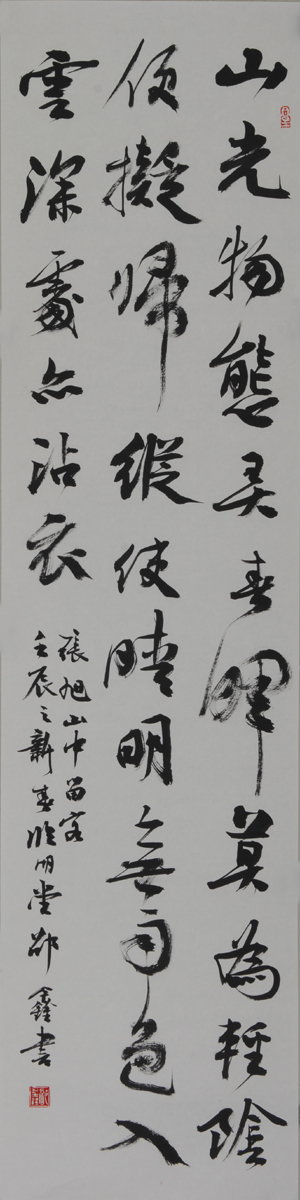 山光物態弄春暉莫為輕陰
便擬歸縱使晴明無雨色入
雲深處亦沾衣
張旭山中留客
壬辰之新春明堂邵鑫書